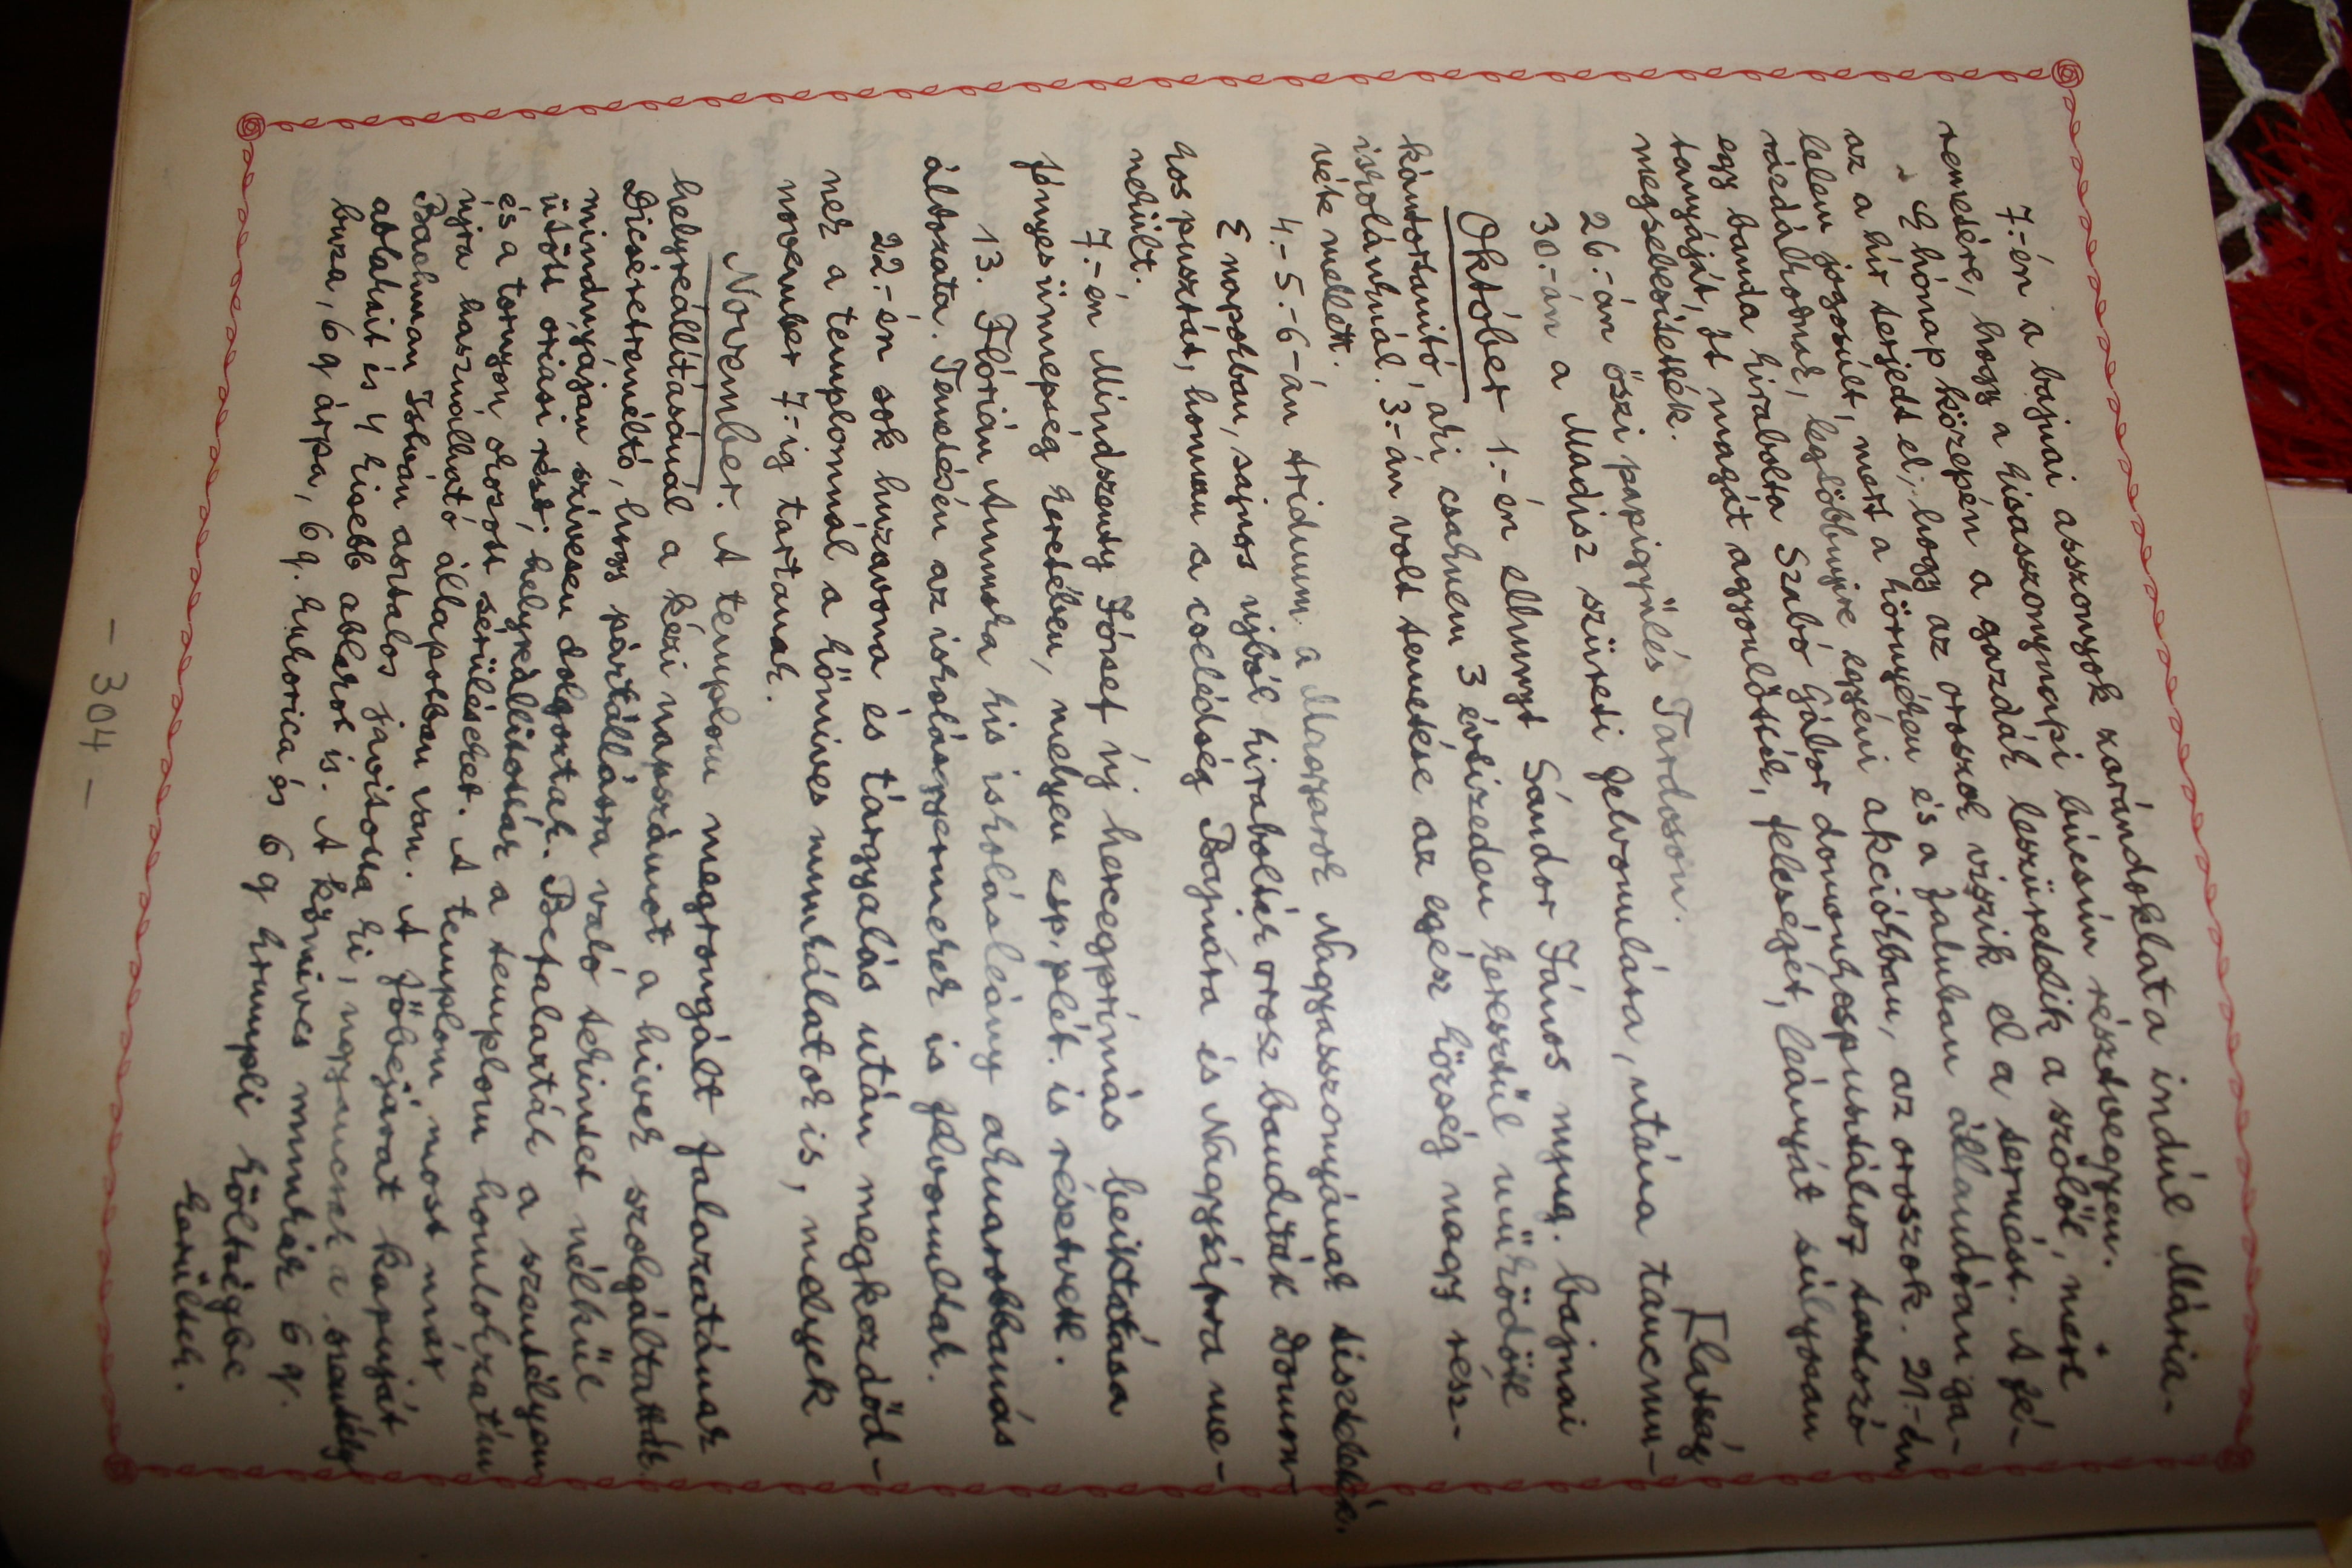 7.-én a bajnai asszonyok zarándoklata indúl Mária-
remetére, hogy a kisasszonynapi búcsún résztvegyen.
E hónap közepén a gazdák leszüretelik a szőlőt, mert
az a hír terjedt el, hogy az oroszok viszik el a termést. A fé-
lelem jogosúlt, mert a környéken és a faluban állandóan ga-
rázdálkodnak, legtöbbnyire egyéni akciókban, az oroszok. 21.-én
egy banda kirabolta Szabó Gábor domonkospusztához tartozó
tanyáját, őt magát agyonlőtték, feleségét, leányát súlyosan
megsebesítették.
26.-án őszi papigyűlés Tardoson.
30.-án a Madisz szüreti felvonulása, utána táncmu-
[latság
Október 1.-én elhunyt Sándor János nyug. bajnai
kántortanító, aki csaknem 3 évtizeden keresztül működött
iskolánknál. 3.-án volt temetése az egész község nagy rész-
véte mellett.
4.-5.-6-án triduum a Magyarok Nagyasszonyának tiszteleté.
E napokban, sajnos ujból kirabolták orosz banditák Domon-
kospusztát, honnan a cselédség Bajnára és Nagysápra me-
nekült.
7.-én Mindszenty József új hercegprímás beiktatása
fényes ünnepség keretében, melyen esp. plét. is résztvett.
13. Flórián Annuska kis iskolásleány aknarobbanás
áldozata. Temetésén az iskolásgyermekek is felvonultak.
22.-én sok huzavona és tárgyalás után megkezdőd-
nek a templomnál a kőmives munkálatok is, melyek
november 7.-ig tartanak.
November. A templom megrongált falazatának
helyreállításánál a kézi napszámot a hivek szolgáltatták.
Dicséretreméltó, hogy pártállásra való tekintet nélkül
mindnyájan szívesen dolgoztak. Befalazták a szentélyen
ütött óriási rést, helyreállították a templom homlokzatán
és a tornyon okozott sérüléseket. A templom most már
újra használható állapotban van. A főbejárat kapuját
Bachman István asztalos javította ki, ugyancsak a szentély
ablakait és 4 kisebb ablakot is. A kőmives munkák 6 q.
buza, 6 q árpa, 6 q. kukorica és 6 q krumpli költségbe
kerültek.
- 304 -